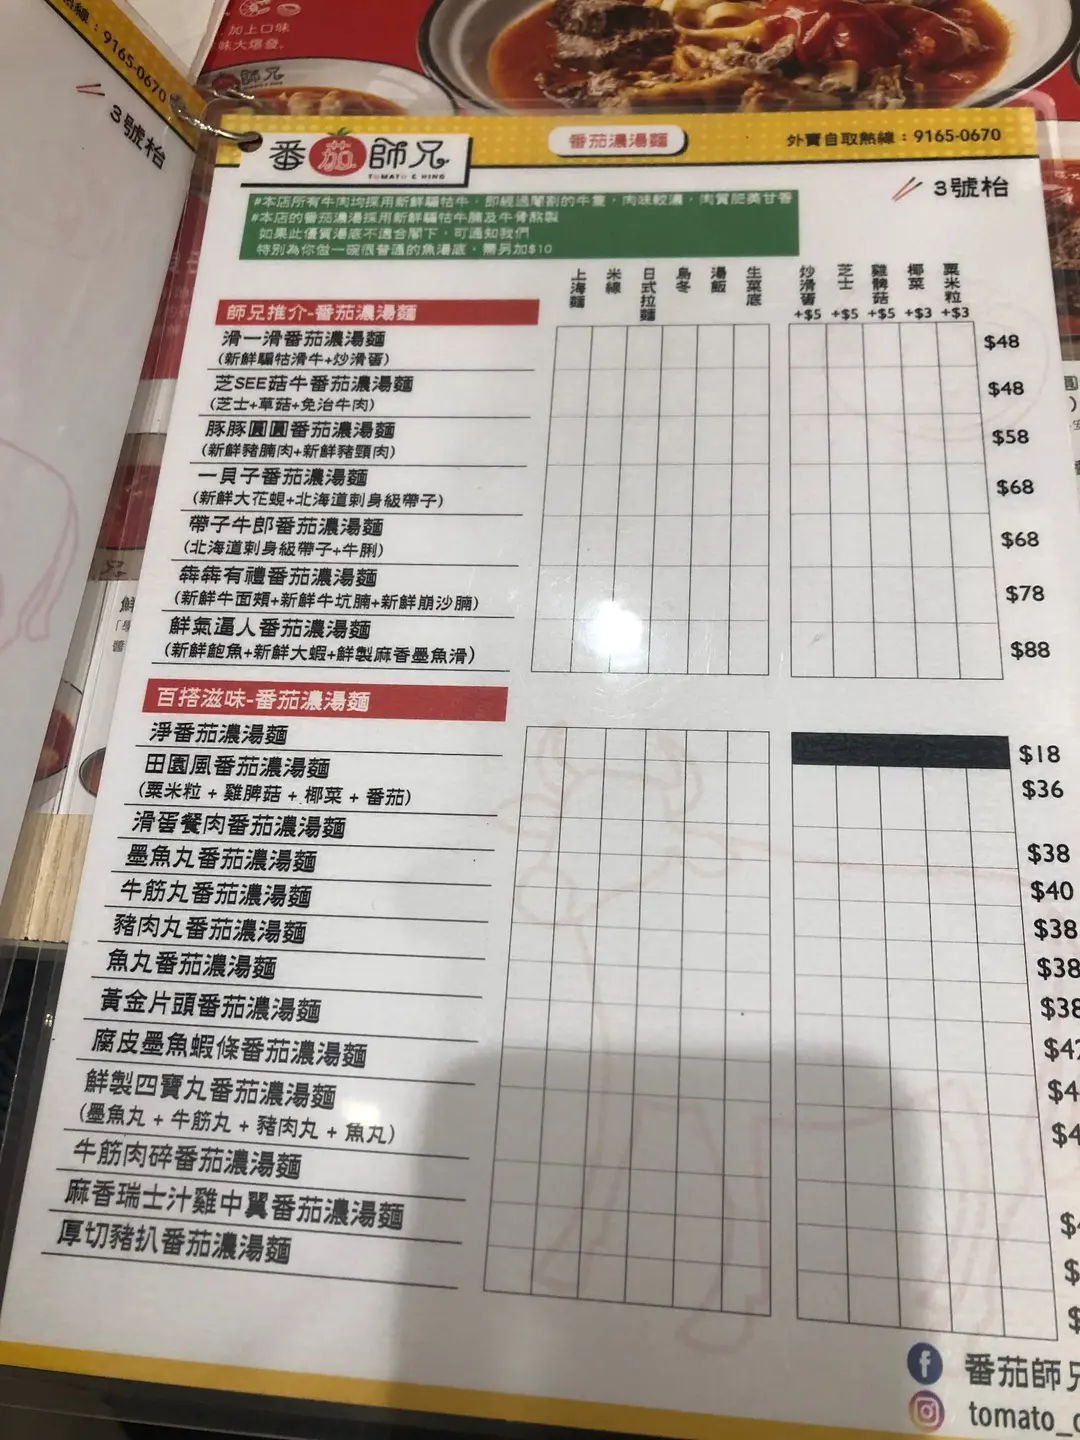 加上口味
味大爆發。
師兄
熱線：9165-0670
3號枱
番茄師兄
TOMATO C HING
番茄濃湯麵
外賣自取熱線：9165-0670
3號枱
#本店所有牛肉均採用新鮮騸牯牛，即經過閹割的牛隻，肉味較濃，肉質肥美甘香
#本店的番茄濃湯採用新鮮騸牯牛腩及牛骨熬製
如果此優質湯底不適合閣下，可通知我們
特別為你做一碗很普通的魚湯底，需另加$10
上海麵 米線 日式拉麵 烏冬 湯飯 生菜底 炒滑蛋+$5 芝士+$5 雞髀菇+$5 椰菜+$3 粟米粒+$3
師兄推介-番茄濃湯麵
滑一滑番茄濃湯麵 $48
(新鮮騸牯滑牛+炒滑蛋)
芝SEE菇牛番茄濃湯麵 $48
(芝士+草菇+免治牛肉)
豚豚圓圓番茄濃湯麵 $58
(新鮮豬腩肉+新鮮豬頸肉)
一貝子番茄濃湯麵 $68
(新鮮大花蜆+北海道刺身級帶子)
帶子牛郎番茄濃湯麵 $68
(北海道刺身級帶子+牛脷)
犇犇有禮番茄濃湯麵 $78
(新鮮牛面頰+新鮮牛坑腩+新鮮崩沙腩)
鮮氣逼人番茄濃湯麵 $88
(新鮮鮑魚+新鮮大蝦+鮮製麻香墨魚滑)
百搭滋味-番茄濃湯麵
淨番茄濃湯麵 $18
田園風番茄濃湯麵 $36
(粟米粒 + 雞脾菇 + 椰菜 + 番茄)
滑蛋餐肉番茄濃湯麵 $38
墨魚丸番茄濃湯麵 $40
牛筋丸番茄濃湯麵 $38
豬肉丸番茄濃湯麵 $38
魚丸番茄濃湯麵 $38
黃金片頭番茄濃湯麵 $42
腐皮墨魚蝦條番茄濃湯麵 $4
鮮製四寶丸番茄濃湯麵 $4
(墨魚丸 + 牛筋丸 + 豬肉丸 + 魚丸)
牛筋肉碎番茄濃湯麵 $4
麻香瑞士汁雞中翼番茄濃湯麵 $
厚切豬扒番茄濃湯麵 $
番茄師兄
tomato_c